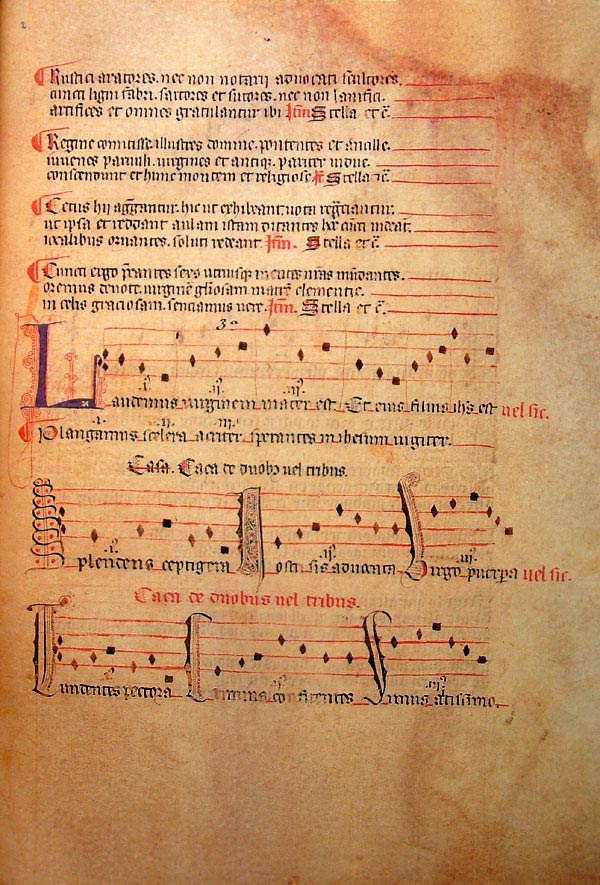 2.
Rustici aratores. nec non notarii advocati scultores.
cuncti ligni fabri. sartores et sutores. nec non lanifici.
artifices et omnes gratulantur ibi Itm̄ Stella et c̄.
Regine comitisse. illustres domine. potentes et ancille.
iuvenes parvuli. virgines et antiq̄. pariter vidue.
conscendunt et hunc montem et religiose. Stella et c̄.
Cetus hii agg̃gantur. hic ut exhibeant vota
ut ipsa et reddant aulam istam ditantes hec cuncti videāt.
iocalibus ornantes. soluti redeant. Itm̄. Stella et c̄.
Cuncti ergo p̃cantes sexus utriusq; mentes nr̃as mūdantes.
oremus devote. virginē gl̃iosam matrē clementie.
in celis graciosam. senciamus vere. Itm̄. Stella et c̄.
3ᵃ
.i. .ii. .iii.
Laudemus virginem mater est Et eius filius ih̄s est vel sic.
.i. .ii. .iii.
Plangamus scelera acriter sperantes in ihesum iugiter.
Caça. Caça de duobꝫ vel tribus.
.i. .ii. .iii.
Splendens ceptigera Nostri sis advocata Virgo puerpera vel sic.
Caça de duobus vel tribus.
.i. .ii. .iii.
Tundentes pectora Crimina confitentes Simus altissimo.